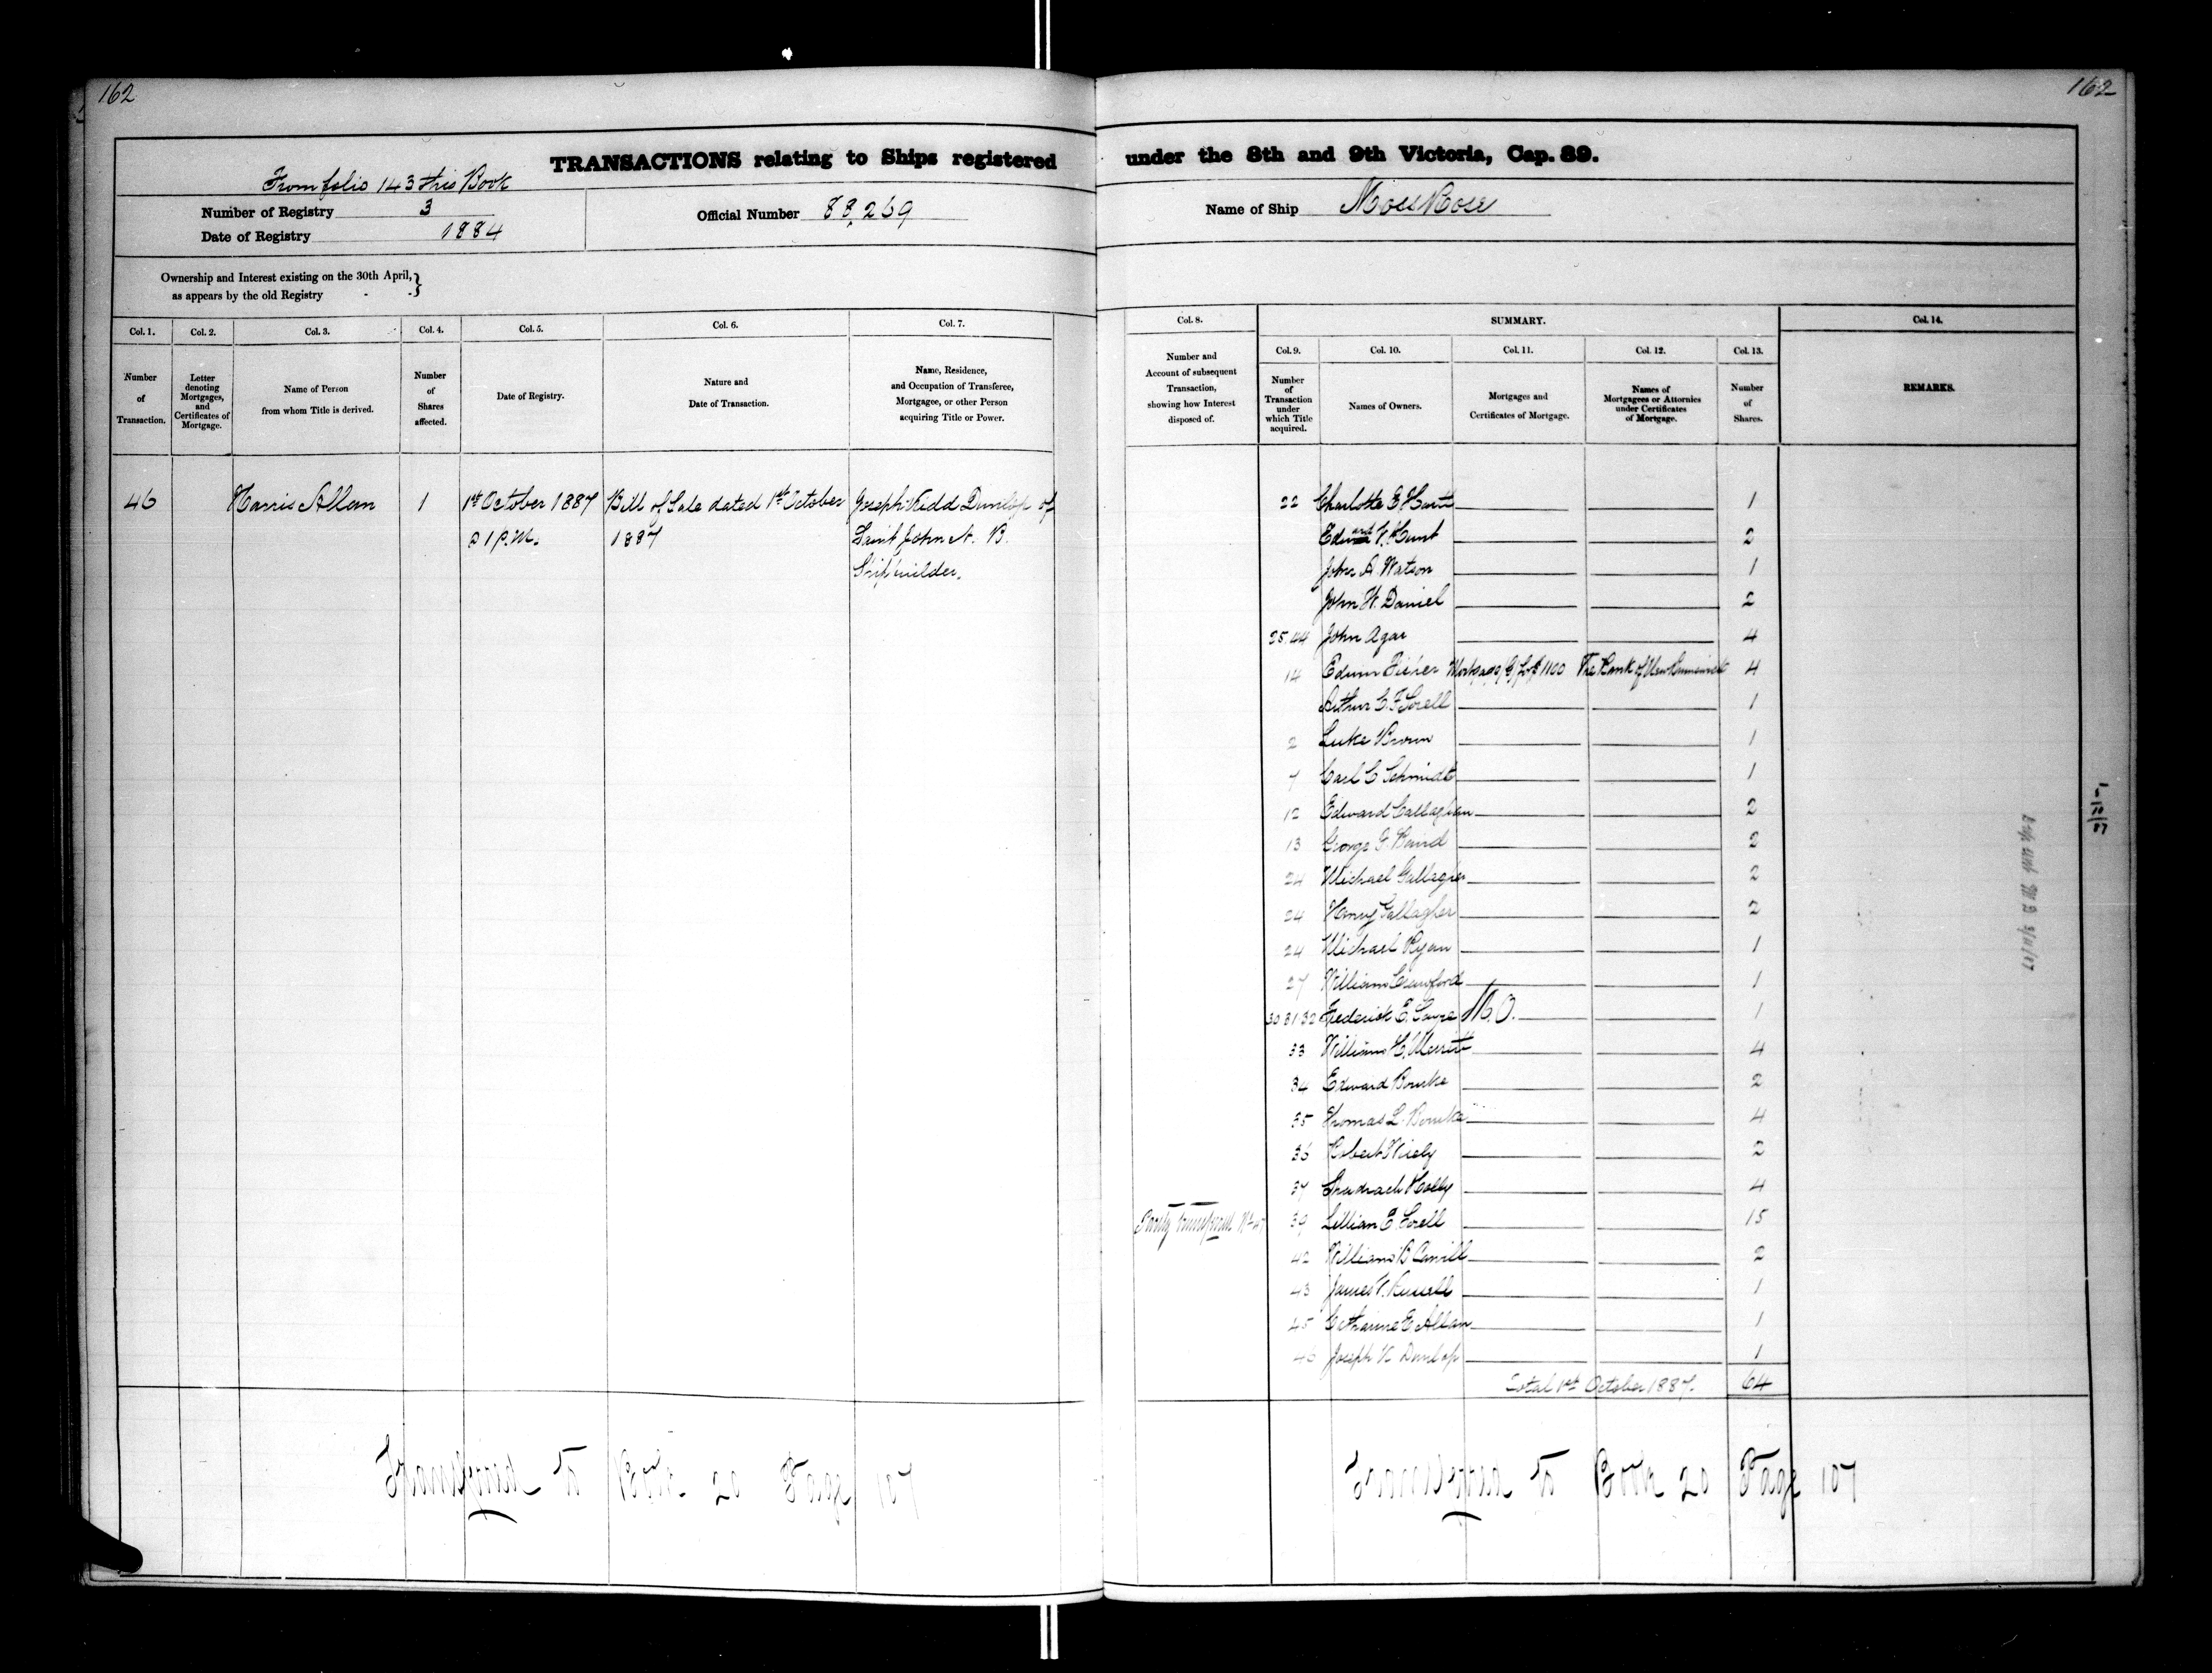 162
TRANSACTIONS relating to Ships registered
From folio 143 this Book
Number of Registry 3
Official Number 88,269
Date of Registry 1884
Ownership and Interest existing on the 30th April,
as appears by the old Registry
Col. 1. Col. 2. Col. 3. Col. 4. Col. 5. Col. 6. Col. 7.
Number of Transaction.
Letter denoting Mortgages, and Certificates of Mortgage.
Name of Person from whom Title is derived.
Number of Shares affected.
Date of Registry.
Nature and Date of Transaction.
Name, Residence, and Occupation of Transferee, Mortgagee, or other Person acquiring Title or Power.
46 Harris Allan 1 1st October 1887 Bill of Sale dated 1st October Joseph Kidd Dunlop of
1 P.M. 1887 Saint John N. B.
Shipbuilder.
Transferred to Book 20 Page 107
162
under the 8th and 9th Victoria, Cap. 89.
Name of Ship Moss Rose
Col. 8. SUMMARY. Col. 14.
Col. 9. Col. 10. Col. 11. Col. 12. Col. 13.
Number and Account of subsequent Transaction, showing how Interest disposed of.
Number of Transaction under which Title acquired.
Names of Owners.
Mortgages and Certificates of Mortgage.
Names of Mortgagees or Attornies under Certificates of Mortgage.
Number of Shares.
REMARKS.
22 Charlotte E 1
V. Hunt 2
John A Watson 1
John W. Daniel 2
25.44 John Agar 4
14 Edwin Fisher Mortgage G for $1100 The Bank of New Brunswick 4
Arthur C. F Sorell 1
2 Luke Brown 1
7 Carl C Schmidt 1
12 Edward Callaghan 2
13 George F. Baird 2
24 Michael Gallagher 2
24 Henry Gallagher 2
24 Michael Ryan 1
27 William Crawford 1
30 31 32 Frederick E. Sayre M.O. 1
33 William H. Merritt 4
34 Edward Bourke 2
35 Thomas L. Bourke 4
36 Robert Wisely 2
37 Shadrach Holly 4
Partly transferred No 47 39 Lillian E. Sorell 15
42 William B Carvill 2
43 James V. Russell 1
45 Catharine E Allan 1
46 Joseph K Dunlop 1
Total 1st October 1887. 64
Transferred to Book 20 Page 107